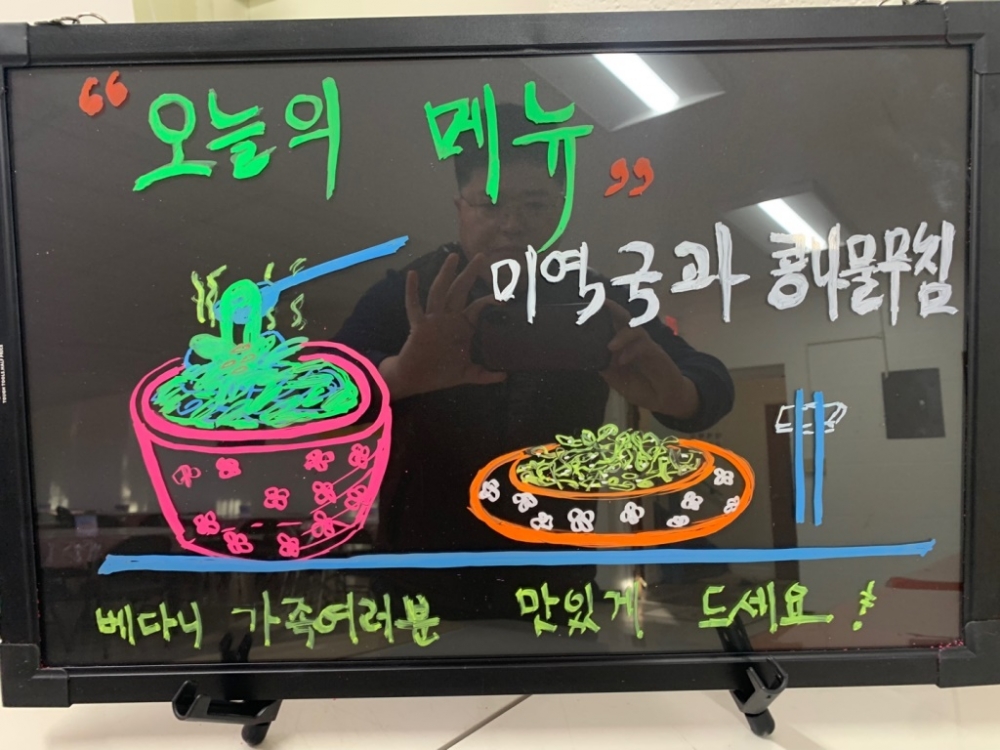 “오늘의 메뉴”
미역국과 콩나물무침
베다니 가족여러분 맛있게 드세요!